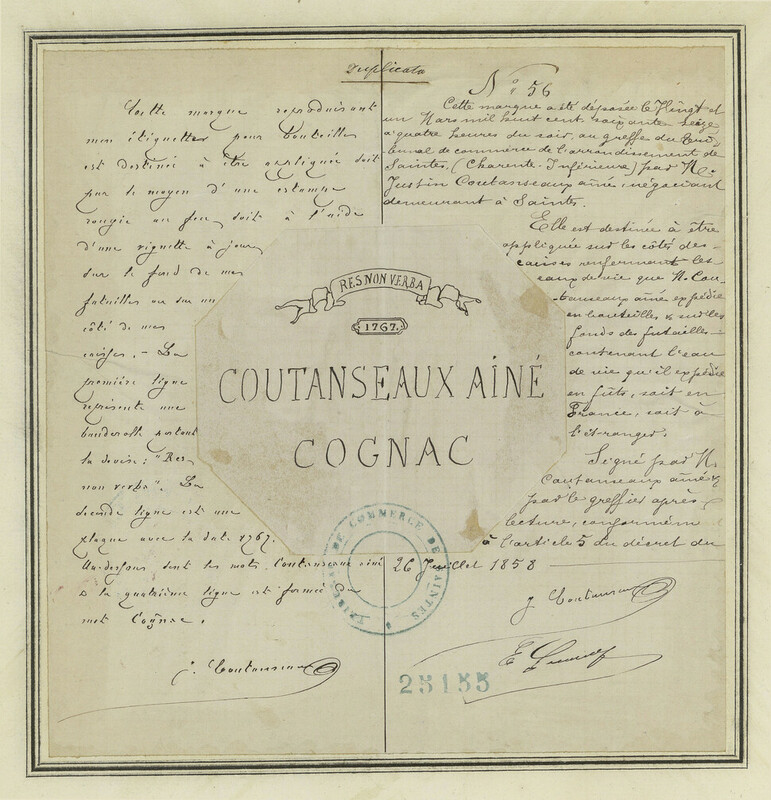 Duplicata
Cette marque reproduisant
mes étiquettes pour bouteilles
est destinée à être appliquée soit
par le moyen d'une estampe
rougie au feu, soit à l'aide
d'une vignette à jour
sur le fond de mes
futailles ou sur un
côté de mes
caisses. - La
première ligne
représente une
banderolle portant
la devise: "Res
non verba". La
seconde ligne est une
plaque avec la date 1767.
Au-dessous sont les mots, Coutanseaux ainé
& la quatrième ligne est formée
mot Cognac.
J. Coutanseaux
RES NON VERBA
1767.
COUTANSEAUX AÎNÉ
COGNAC
N° 56
Cette marque a été déposée le Vingt et
un Mars mil huit cent soixante seize
à quatre heures du soir, au greffe du tri-
bunal de commerce de l'arrondissement de
Saintes, (Charente-Inférieure) par M.
Justin Coutanseaux aîné, négociant
demeurant à Saintes.
Elle est destinée à être
appliquée sur les côtés des
caisses renfermant les
eaux de vie que M. Cou-
tanseaux aîné expédie
en bouteilles & sur les
fonds des futailles
contenant l'eau
de vie qu'il expédie
en fûts, soit en
France, soit à
l'étranger.
Signé par M.
Coutanseaux aîné &
par le greffier après
lecture, conformém
à l'article 5 du décret du
26 Juillet 1858
J. Coutanseaux
TRIBUNAL DE COMMERCE DE SAINTES
25155